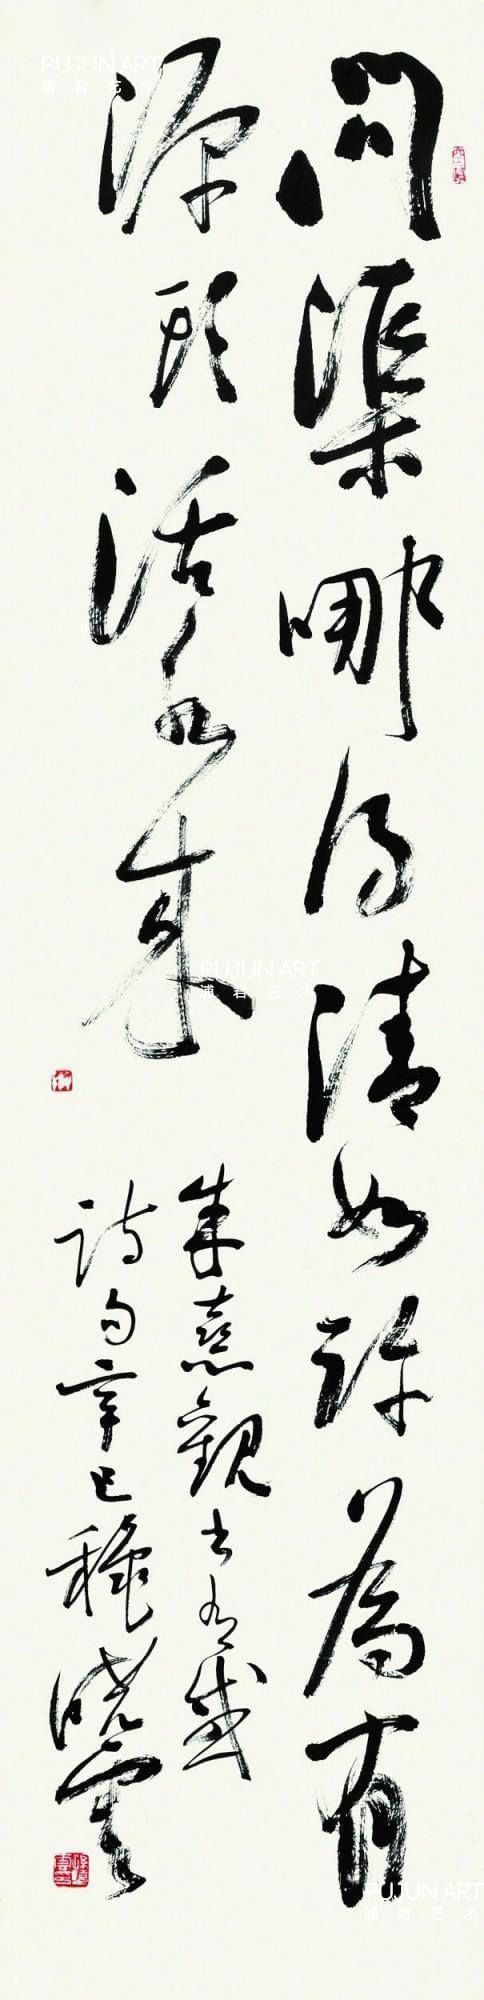 問渠哪得清如許為有
源頭活水来
朱熹觀書有感
詩句辛巳龝晓雲
PUJUN ART
浦君艺术
PUJUN ART
浦君艺术
PUJUN ART
浦君艺术